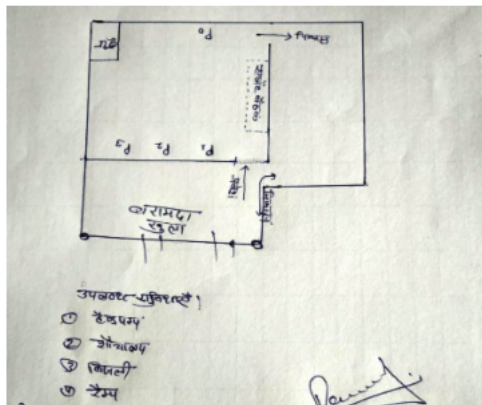 P0
निकास
P3 P2 P1
प्रवेश
बरामदा
खुला
उपलब्ध सुविधाएँ।
① हैण्डपम्प
② शौचालय
③ बिजली
④ रैम्प